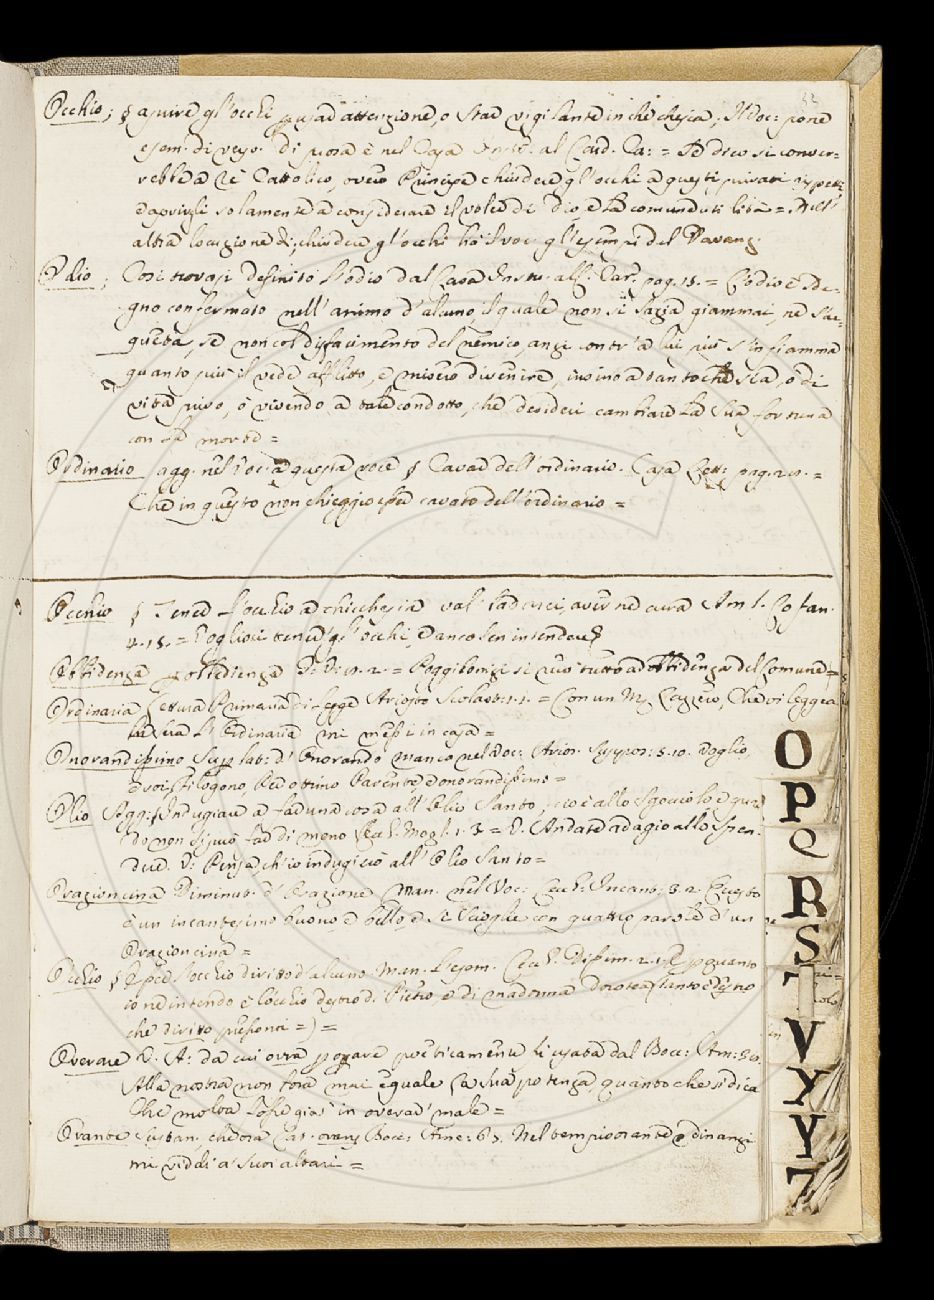 Occhio; § aprire gl'occhi p usar attenzione, o star vigilante in che chesia; Il Voc: pone
esem: di verso. Di prosa è nel Casa Instr. al Card. Ca: = Se dico si conver-
rebbe a Rè Cattolico, overo Principe chiudere gl'occhi a questi privati rispetti
e aprirgli solamente a considerare il voler di Dio, e la comun
altra locuzione di chiudere gl'occhi ha il Voc. gl'esempi del Davanz.
Odio; Così trovasi definito l'odio dal Casa Instr. all. Car. pag. 15. = L'odio è Sde-
gno confermato nell'animo d'alcuno, il quale non si sazia giammai, ne s'ac-
queta, se non col disfacimento del nemico, anzi contr'a lui più s'infiamma
quanto più il vede afflitto, e misero divenire, insino a tanto che sia, o di
vita privo, ò vivendo a tale condotto, che desideri cambiare la sua fortuna
con la morte =
Ordinario agg. nel Voc: a questa voce § Cavar dell'ordinario. Casa Lett: pag. 210. =
Che in questo non chieggio esser cavato dell'ordinario =
Occhio § Tener l'occhio a chicchesia val' badarci, aver ne cura Am
4. 15. = Vogliovi tener gl'occhi, e anco ben intendere
Obbidenza p obbedienza = Poggibonizi si reco tutto ad obbidenza del Comune =
Ordinaria Lettura Primaria di Legge Ariosto Scolast: 1. 1. = Con un M. Lazzero, che vi leggea
la sera l'Ordinaria mi messi in casa =
Onorandissimo Sup lat: d'Onorando manca nel Voc: Arios. Suppos: 5. 10. Voglio
e voi Filogono, per ottimo Parente, e onorandissimo =
Olio Agg: § Indugiare a far una cosa all'Olio Santo, cioè allo sgocciolo, e quan
do non si può far di meno Cecch: Mogl. 1. 3 = V. Andare adagio allo spen-
dere. V. Pensa ch'io indugierò all'Olio Santo =
Orazioncina Diminut. d'Orazione man. nel Voc: Cecch: Incant: 3. 2. Questo
è un incantesimo buono, e bello, e si scioglie con quattro parole d'un
Orazioncina =
Occhio § Esser l'occhio diritto d'alcuno. Man. l'esem. Cecch. Dissim. 2. 1. E p quanto
io ne intendo è l'occhio destro di Pietro e di madonna Dorotea
che diritto presonti =) =
Overare V. A: da cui ovra p oprare poeticamente fù usata dal Bocc: Am: 30.
Alla nostra non fora mai eguale La sua potenza, quanto che si dica
Che molta fosse già in overar' male =
Orante Sustan., che ora Lat. orans Bocc: Ame: 63. Nel tempio orante e dinanzi
mi viddi a' suoi altari =
O
P
Q
R
S
T
V
X
Y
Z